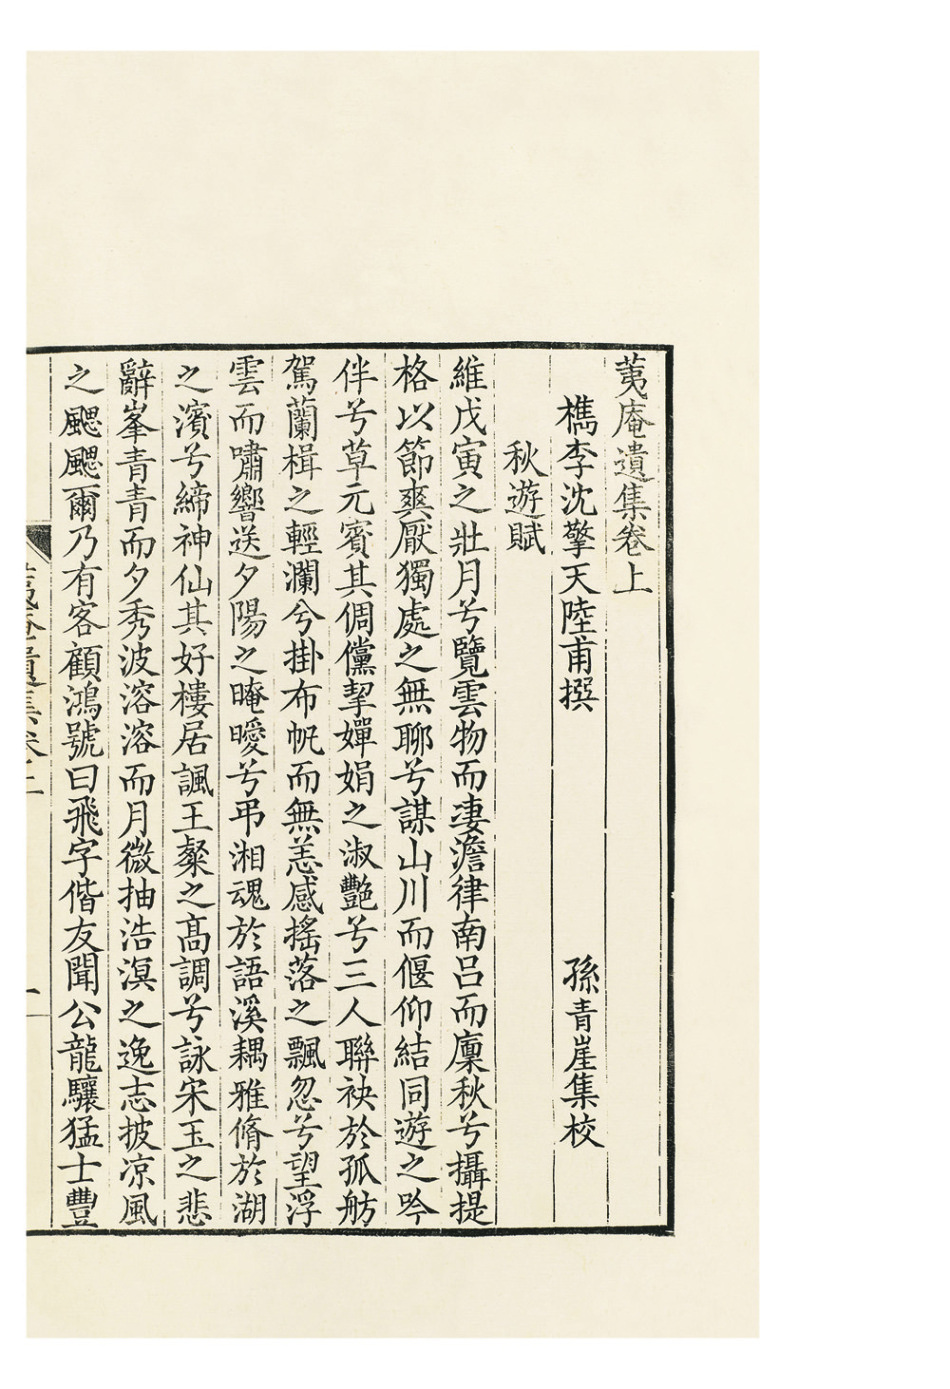 荑庵遺集卷上
檇李沈擎天陸甫撰　孫青崖集校
秋遊賦
維戊寅之壯月兮覽雲物而凄澹律南呂而廩秋兮攝提
格以節爽厭獨處之無聊兮謀山川而偃仰結同遊之吟
伴兮草元賓其倜儻挈嬋娟之淑艷兮三人聯袂於孤舫
駕蘭楫之輕瀾兮掛布帆而無恙感搖落之飄忽兮望浮
雲而嘯響送夕陽之晻曖兮弔湘魂於語溪耦雅脩於湖
之濱兮締神仙其好樓居諷王粲之高調兮詠宋玉之悲
辭峯青青而夕秀波溶溶而月微抽浩溟之逸志披凉風
之颸颸爾乃有客顧鴻號曰飛字偕友聞公龍驤猛士豐